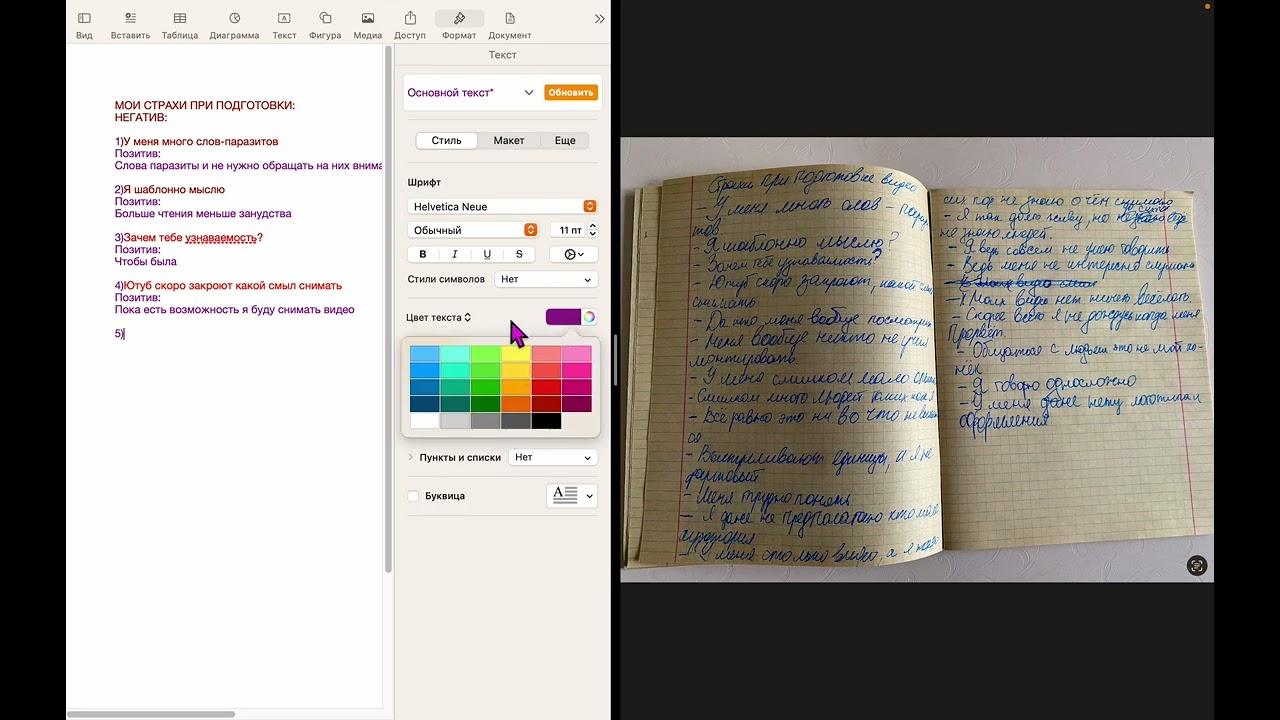 Вид
Вставить
Таблица
Диаграмма
Текст
Фигура
Медиа
Доступ
Формат
Документ
МОИ СТРАХИ ПРИ ПОДГОТОВКИ:
НЕГАТИВ:
1)У меня много слов-паразитов
Позитив:
Слова паразиты и не нужно обращать на них внима
2)Я шаблонно мыслю
Позитив:
Больше чтения меньше занудства
3)Зачем тебе узнаваемость?
Позитив:
Чтобы была
4)Ютуб скоро закроют какой смыл снимать
Позитив:
Пока есть возможность я буду снимать видео
5)
Текст
Основной текст*
Обновить
Стиль
Макет
Еще
Шрифт
Helvetica Neue
Обычный
11 пт
B I U S
Стили символов
Нет
Цвет текста
Пункты и списки
Нет
Буквица
A
Страхи при подготовке видео
- У меня много слов - парази
тов.
- Я шаблонно мыслю?
- Зачем тебе узнаваемость?
- Ютуб скоро закроют, какой
снимать
- Да кто меня вообще посмотрит
- Меня вообще никто не учил
монтировать
- У меня слишком мало
- Слишком много людей таких как я
- Всё равно это ни во что не
ся
- Выстреливают единицы, а я не
фартовый
- Меня трудно понять
- Я даже не предполагаю кто моя
аудитория
меня столько видео, а я
сих пор не знаю о чём
- Я так долго живу, но
не знаю людей.
- Я ведь совсем не умею говорить
- Ведь меня не интересно слушать
- Моих видео нет ничего весёлого.
- Скорее всего я не дождусь когда меня
Прорвёт.
- Общаться с людьми это не мой ко-
нёк
- Я говорю односложно
- У меня даже нету логотипа и
оформления.